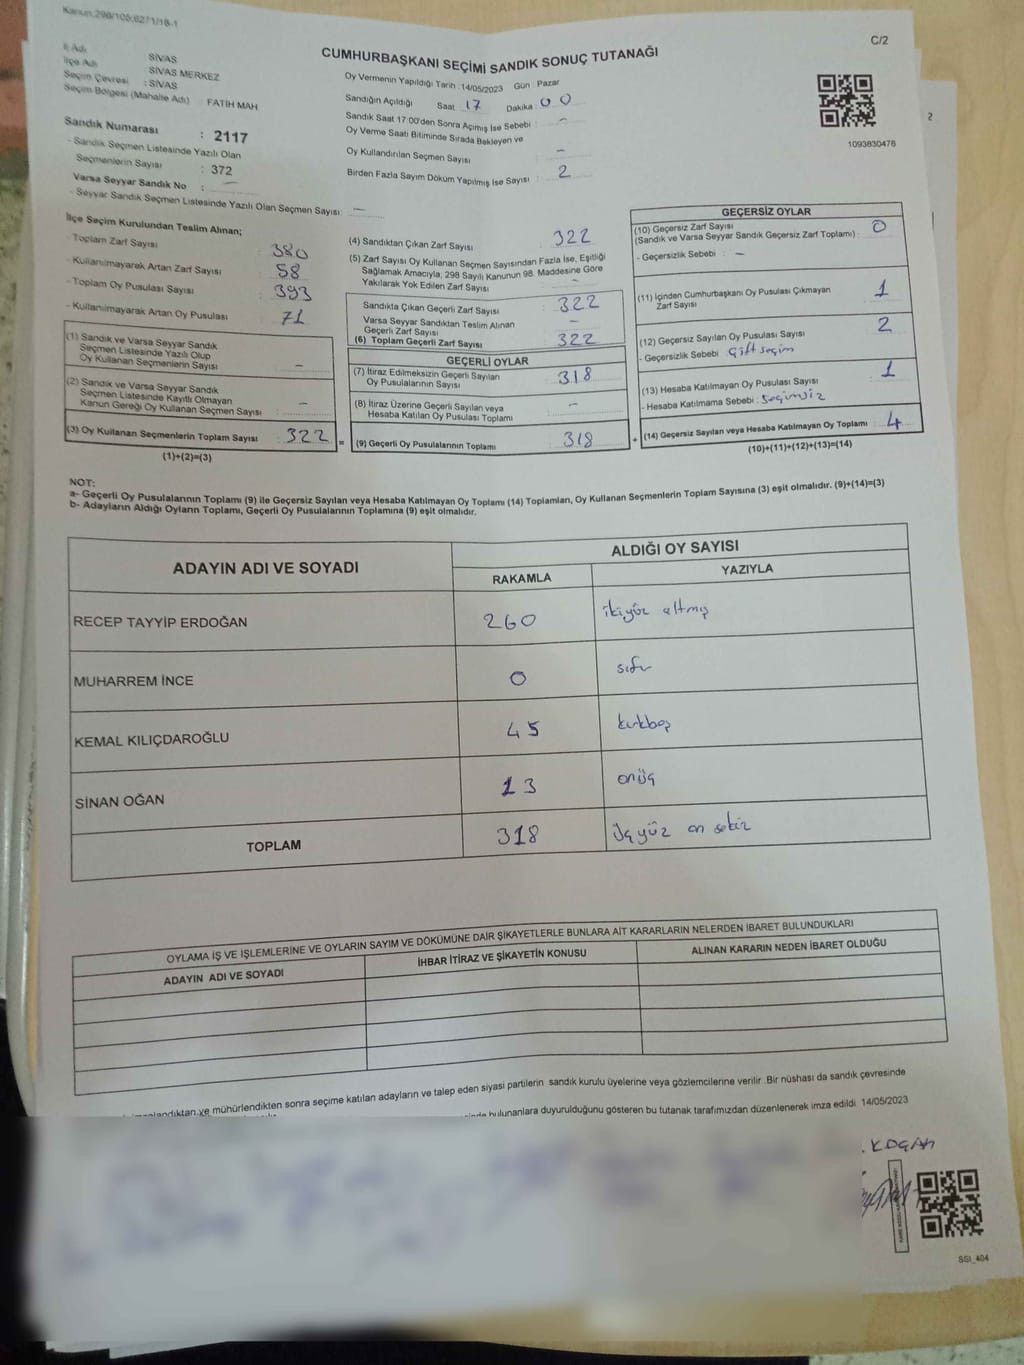 Kanun:298/105;6271/18-1
C/2
CUMHURBAŞKANI SEÇİMİ SANDIK SONUÇ TUTANAĞI
İl Adı SİVAS
İlçe Adı SİVAS MERKEZ
Seçim Çevresi : SİVAS
Seçim Bölgesi (Mahalle Adı) : FATİH MAH
Sandık Numarası : 2117
- Sandık Seçmen Listesinde Yazılı Olan
Seçmenlerin Sayısı : 372
Varsa Seyyar Sandık No : —
- Seyyar Sandık Seçmen Listesinde Yazılı Olan Seçmen Sayısı: —
Oy Vermenin Yapıldığı Tarih :14/05/2023 Gün : Pazar
Sandığın Açıldığı Saat 17 Dakika : 00
Sandık Saat 17:00'den Sonra Açımış İse Sebebi : -
Oy Verme Saati Bitiminde Sırada Bekleyen ve
Oy Kullandırılan Seçmen Sayısı : -
Birden Fazla Sayım Döküm Yapılmış İse Sayısı : 2
1093830476
2
İlçe Seçim Kurulundan Teslim Alınan;
- Toplam Zarf Sayısı : 380
- Kullanılmayarak Artan Zarf Sayısı : 58
- Toplam Oy Pusulası Sayısı : 393
- Kullanılmayarak Artan Oy Pusulası : 71
(1) Sandık ve Varsa Seyyar Sandık
Seçmen Listesinde Yazılı Olup
Oy Kullanan Seçmenlerin Sayısı : -
(2) Sandık ve Varsa Seyyar Sandık
Seçmen Listesinde Kayıtlı Olmayan
Kanun Gereği Oy Kullanan Seçmen Sayısı : -
(3) Oy Kullanan Seçmenlerin Toplam Sayısı : 322
(1)+(2)=(3)
(4) Sandıktan Çıkan Zarf Sayısı : 322
(5) Zarf Sayısı Oy Kullanan Seçmen Sayısından Fazla İse, Eşitliği
Sağlamak Amacıyla; 298 Sayılı Kanunun 98. Maddesine Göre
Yakılarak Yok Edilen Zarf Sayısı : -
Sandıkta Çıkan Geçerli Zarf Sayısı : 322
Varsa Seyyar Sandıktan Teslim Alınan
Geçerli Zarf Sayısı : -
(6) Toplam Geçerli Zarf Sayısı : 322
GEÇERLİ OYLAR
(7) İtiraz Edilmeksizin Geçerli Sayılan
Oy Pusulalarının Sayısı : 318
(8) İtiraz Üzerine Geçerli Sayılan veya
Hesaba Katılan Oy Pusulası Toplamı : -
= (9) Geçerli Oy Pusulalarının Toplamı : 318
GEÇERSİZ OYLAR
(10) Geçersiz Zarf Sayısı
(Sandık ve Varsa Seyyar Sandık Geçersiz Zarf Toplamı) : 0
- Geçersizlik Sebebi : -
(11) İçinden Cumhurbaşkanı Oy Pusulası Çıkmayan
Zarf Sayısı : 1
(12) Geçersiz Sayılan Oy Pusulası Sayısı : 2
- Geçersizlik Sebebi : Çift seçim
(13) Hesaba Katılmayan Oy Pusulası Sayısı : 1
- Hesaba Katılmama Sebebi : Seçimsiz
+ (14) Geçersiz Sayılan veya Hesaba Katılmayan Oy Toplamı : 4
(10)+(11)+(12)+(13)=(14)
NOT:
a- Geçerli Oy Pusulalarının Toplamı (9) ile Geçersiz Sayılan veya Hesaba Katılmayan Oy Toplamı (14) Toplamları, Oy Kullanan Seçmenlerin Toplam Sayısına (3) eşit olmalıdır. (9)+(14)=(3)
b- Adayların Aldığı Oyların Toplamı, Geçerli Oy Pusulalarının Toplamına (9) eşit olmalıdır.
ADAYIN ADI VE SOYADI ALDIĞI OY SAYISI
RAKAMLA YAZIYLA
RECEP TAYYİP ERDOĞAN 260 ikiyüz altmış
MUHARREM İNCE 0 sıfır
KEMAL KILIÇDAROĞLU 45 kırkbeş
SİNAN OĞAN 13 onüç
TOPLAM 318 üçyüz on sekiz
OYLAMA İŞ VE İŞLEMLERİNE VE OYLARIN SAYIM VE DÖKÜMÜNE DAİR ŞİKAYETLERLE BUNLARA AİT KARARLARIN NELERDEN İBARET BULUNDUKLARI
ADAYIN ADI VE SOYADI İHBAR İTİRAZ VE ŞİKAYETİN KONUSU ALINAN KARARIN NEDEN İBARET OLDUĞU
ve mühürlendikten sonra seçime katılan adayların ve talep eden siyasi partilerin sandık kurulu üyelerine veya gözlemcilerine verilir .Bir nüshası da sandık çevresinde
bulunanlara duyurulduğunu gösteren bu tutanak tarafımızdan düzenlenerek imza edildi 14/05/2023
SSI_404